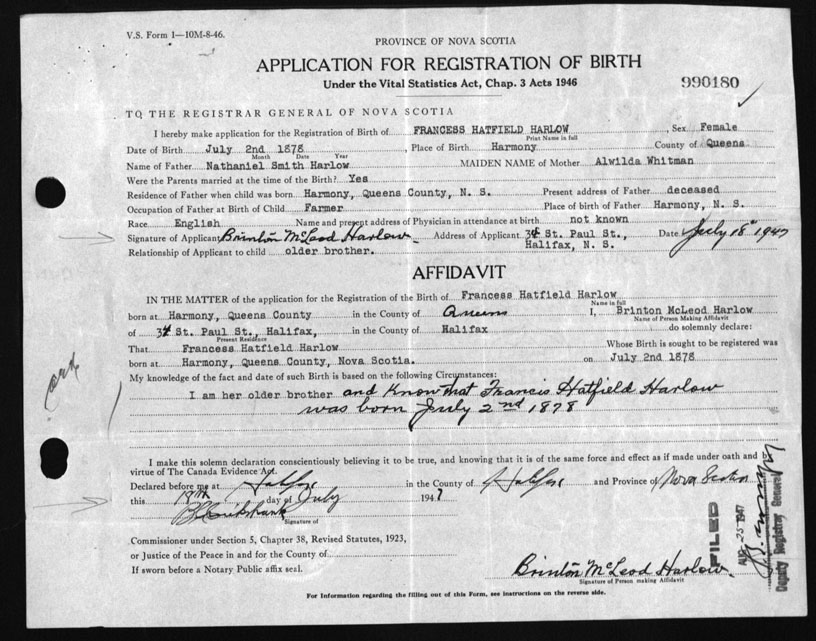 V.S. Form 1—10M-8-46.
PROVINCE OF NOVA SCOTIA
APPLICATION FOR REGISTRATION OF BIRTH
Under the Vital Statistics Act, Chap. 3 Acts 1946
990180
TO THE REGISTRAR GENERAL OF NOVA SCOTIA
I hereby make application for the Registration of Birth of FRANCESS HATFIELD HARLOW, Sex Female
Print Name in full
Date of Birth July 2nd 1878, Place of Birth Harmony County of Queens
Month Date Year
Name of Father Nathaniel Smith Harlow MAIDEN NAME of Mother Alwilda Whitman
Were the Parents married at the time of the Birth? Yes
Residence of Father when child was born Harmony, Queens County, N. S. Present address of Father deceased
Occupation of Father at Birth of Child Farmer Place of birth of Father Harmony, N. S.
Race English Name and present address of Physician in attendance at birth not known
Signature of Applicant Brinton McLeod Harlow Address of Applicant 34 St. Paul St., Halifax, N. S. Date July 18 1947
Relationship of Applicant to child older brother.
AFFIDAVIT
IN THE MATTER of the application for the Registration of the Birth of Francess Hatfield Harlow
Name in full
born at Harmony, Queens County in the County of Queens I, Brinton McLeod Harlow
Name of Person Making Affidavit
of 34 St. Paul St., Halifax, in the County of Halifax do solemnly declare:
Present Residence
That Francess Hatfield Harlow Whose Birth is sought to be registered was
born at Harmony, Queens County, Nova Scotia. on July 2nd 1878
My knowledge of the fact and date of such Birth is based on the following Circumstances:
I am her older brother and Know that Francis Hatfield Harlow
was born July 2nd 1878
I make this solemn declaration conscientiously believing it to be true, and knowing that it is of the same force and effect as if made under oath and by
virtue of The Canada Evidence Act.
Declared before me at Halifax in the County of Halifax and Province of Nova Scotia
this 19th day of July 1947
Signature of
Commissioner under Section 5, Chapter 38, Revised Statutes, 1923,
or Justice of the Peace in and for the County of
If sworn before a Notary Public affix seal.
Brinton McLeod Harlow.
Signature of Person making Affidavit
FILED
AUG 25 1947
Deputy Registrar General
For Information regarding the filling out of this Form, see instructions on the reverse side.